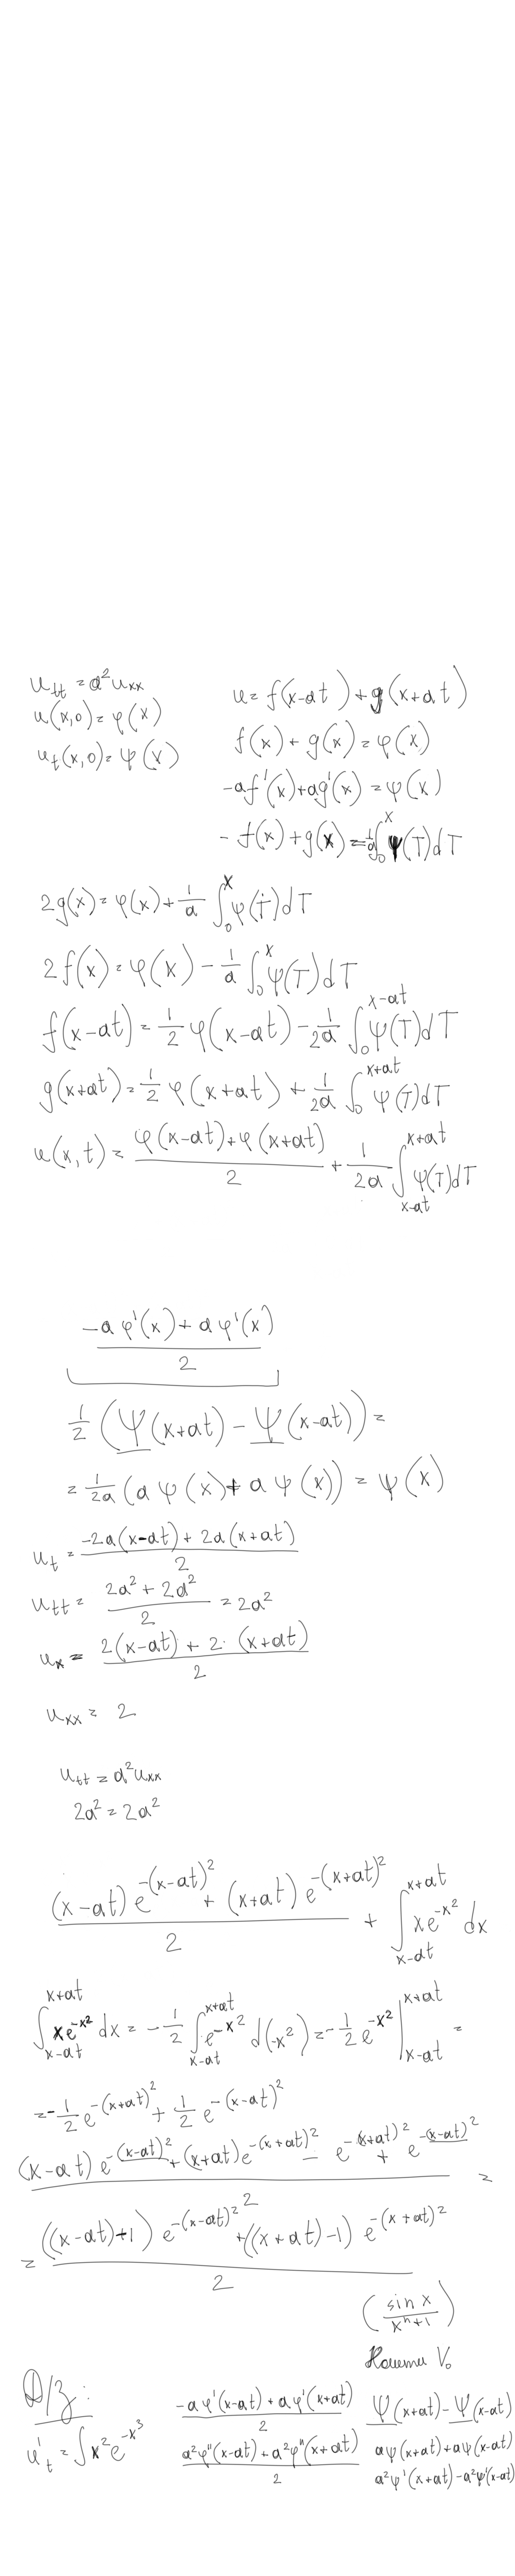 u_tt = a²u_xx
u(x,0) = φ(x)
u_t(x,0) = ψ(x)
u = f(x-at) + g(x+at)
f(x) + g(x) = φ(x)
-af'(x) + ag'(x) = ψ(x)
-f(x) + g(x) = 1/a ∫_0^x ψ(T)dT
2g(x) = φ(x) + 1/a ∫_0^x ψ(T)dT
2f(x) = φ(x) - 1/a ∫_0^x ψ(T)dT
f(x-at) = 1/2 φ(x-at) - 1/2a ∫_0^{x-at} ψ(T)dT
g(x+at) = 1/2 φ(x+at) + 1/2a ∫_0^{x+at} ψ(T)dT
u(x,t) = (φ(x-at)+φ(x+at))/2 + 1/2a ∫_{x-at}^{x+at} ψ(T)dT
(-aφ'(x) + aφ'(x))/2
1/2 (Ψ(x+at) - Ψ(x-at)) =
= 1/2a (aψ(x) + aψ(x)) = ψ(x)
u_t = (-2a(x-at) + 2a(x+at))/2
u_tt = (2a² + 2a²)/2 = 2a²
u_x = (2(x-at) + 2·(x+at))/2
u_xx = 2
u_tt = a²u_xx
2a² = 2a²
((x-at)e^{-(x-at)²} + (x+at)e^{-(x+at)²})/2 + ∫_{x-at}^{x+at} xe^{-x²} dx
∫_{x-at}^{x+at} xe^{-x²} dx = -1/2 ∫_{x-at}^{x+at} e^{-x²} d(-x²) = -1/2 e^{-x²} |_{x-at}^{x+at} =
= -1/2 e^{-(x+at)²} + 1/2 e^{-(x-at)²}
((x-at)e^{-(x-at)²} + (x+at)e^{-(x+at)²} - e^{-(x+at)²} + e^{-(x-at)²})/2 =
= (((x-at)+1)e^{-(x-at)²} + ((x+at)-1)e^{-(x+at)²})/2
(sin x/(xⁿ+1))
V₀
Д/З:
u'_t = ∫x²e^{-x³}
(-aφ'(x-at) + aφ'(x+at))/2
(a²φ''(x-at) + a²φ''(x+at))/2
Ψ(x+at) - Ψ(x-at)
aψ(x+at) + aψ(x-at)
a²ψ'(x+at) - a²ψ'(x-at)